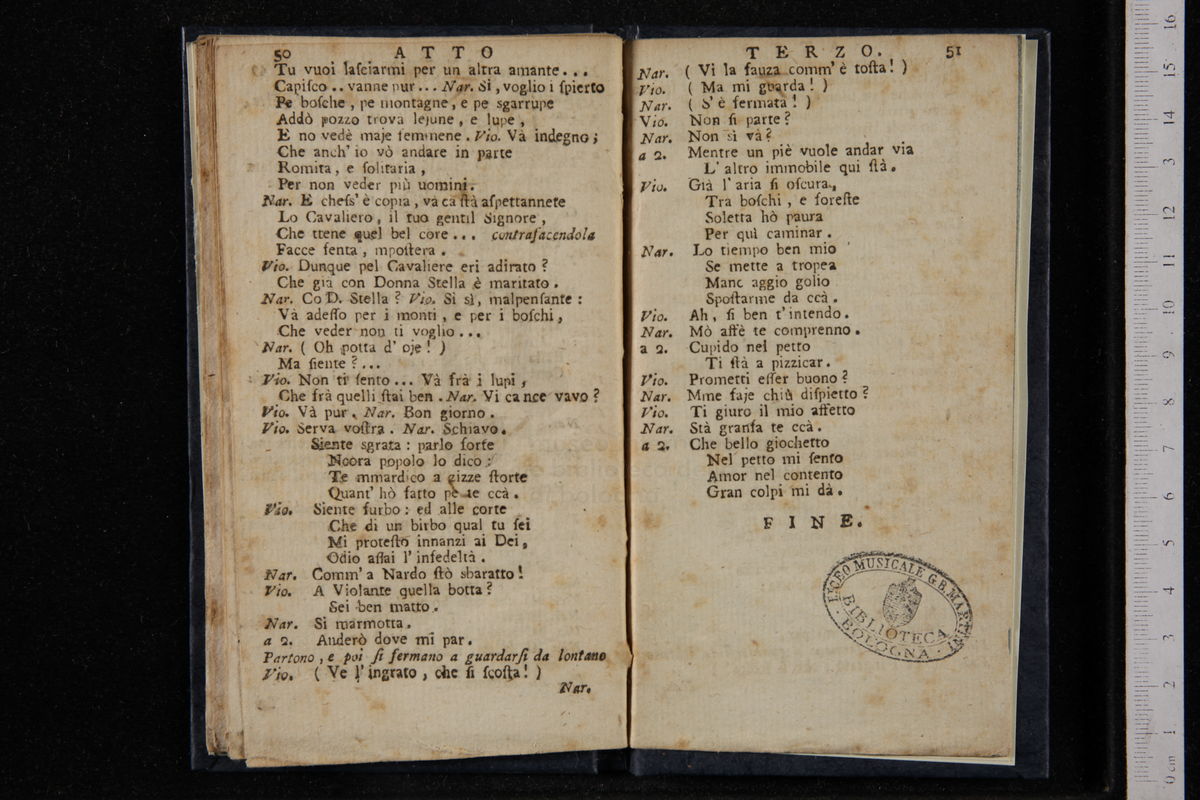 50 ATTO
Tu vuoi laſeiarmi per un altra amante...
Capiſco .. vanne pur... Nar. Sì, voglio i ſpierto
Pe boſche, pe montagne, e pe sgarrupe
Addò pozzo trova lejune, e lupe,
E no vedè maje femmene. Vio. Và indegno;
Che anch' io vò andare in parte
Romita, e ſolitaria,
Per non veder più uomini.
Nar. E cheſs' è copia, và ca ſtà aſpettannete
Lo Cavaliero, il tuo gentil Signore,
Che ttene quel bel core... contrafacendola
Facce fenta, mpoſtera.
Vio. Dunque pel Cavaliere eri adirato?
Che già con Donna Stella è maritato.
Nar. Co D. Stella? Vio. Sì sì, malpenſante:
Và adeſſo per i monti, e per i boſchi,
Che veder non ti voglio...
Nar. (Oh potta d' oje!)
Ma ſiente?...
Vio. Non ti ſento... Và frà i lupi,
Che frà quelli ſtai ben. Nar. Vi ca nce vavo?
Vio. Và pur. Nar. Bon giorno.
Vio. Serva voſtra. Nar. Schiavo.
Siente sgrata: parlo forte
Ncora popolo lo dico:
Te mmardico a gizze ſtorte
Quant' hò fatto pe te ccà.
Vio. Siente furbo: ed alle corte
Che di un birbo qual tu ſei
Mi proteſto innanzi ai Dei,
Odio aſſai l' infedeltà.
Nar. Comm' a Nardo ſtò sbaratto!
Vio. A Violante quella botta?
Sei ben matto.
Nar. Si marmotta.
a 2. Anderò dove mi par.
Partono, e poi ſi fermano a guardarſi da lontano
Vio. (Ve l' ingrato, che ſi ſcoſta!)
Nar.
TERZO. 51
Nar. (Vi la fauza comm' è toſta!)
Vio. (Ma mi guarda!)
Nar. (S' è fermata!)
Vio. Non ſi parte?
Nar. Non sì và?
a 2. Mentre un piè vuole andar via
L' altro immobile qui ſtà.
Vio. Già l' aria ſi oſcura,
Tra boſchi, e foreſte
Soletta hò paura
Per quì caminar.
Nar. Lo tiempo ben mio
Se mette a tropea
Manc aggio golio
Spoſtarme da ccà.
Vio. Ah, ſi ben t' intendo.
Nar. Mò affè te comprenno.
a 2. Cupido nel petto
Ti ſtà a pizzicar.
Vio. Prometti eſſer buono?
Nar. Mme faje chiù diſpietto?
Vio. Ti giuro il mio affetto
Nar. Stà granfa te ccà.
a 2. Che bello giochetto
Nel petto mi ſento
Amor nel contento
Gran colpi mi dà.
FINE.
LYCEO MUSICALE G.B. MARTINI
BIBLIOTECA
BOLOGNA
0 cm 1 2 3 4 5 6 7 8 9 10 11 12 3 14 15 16